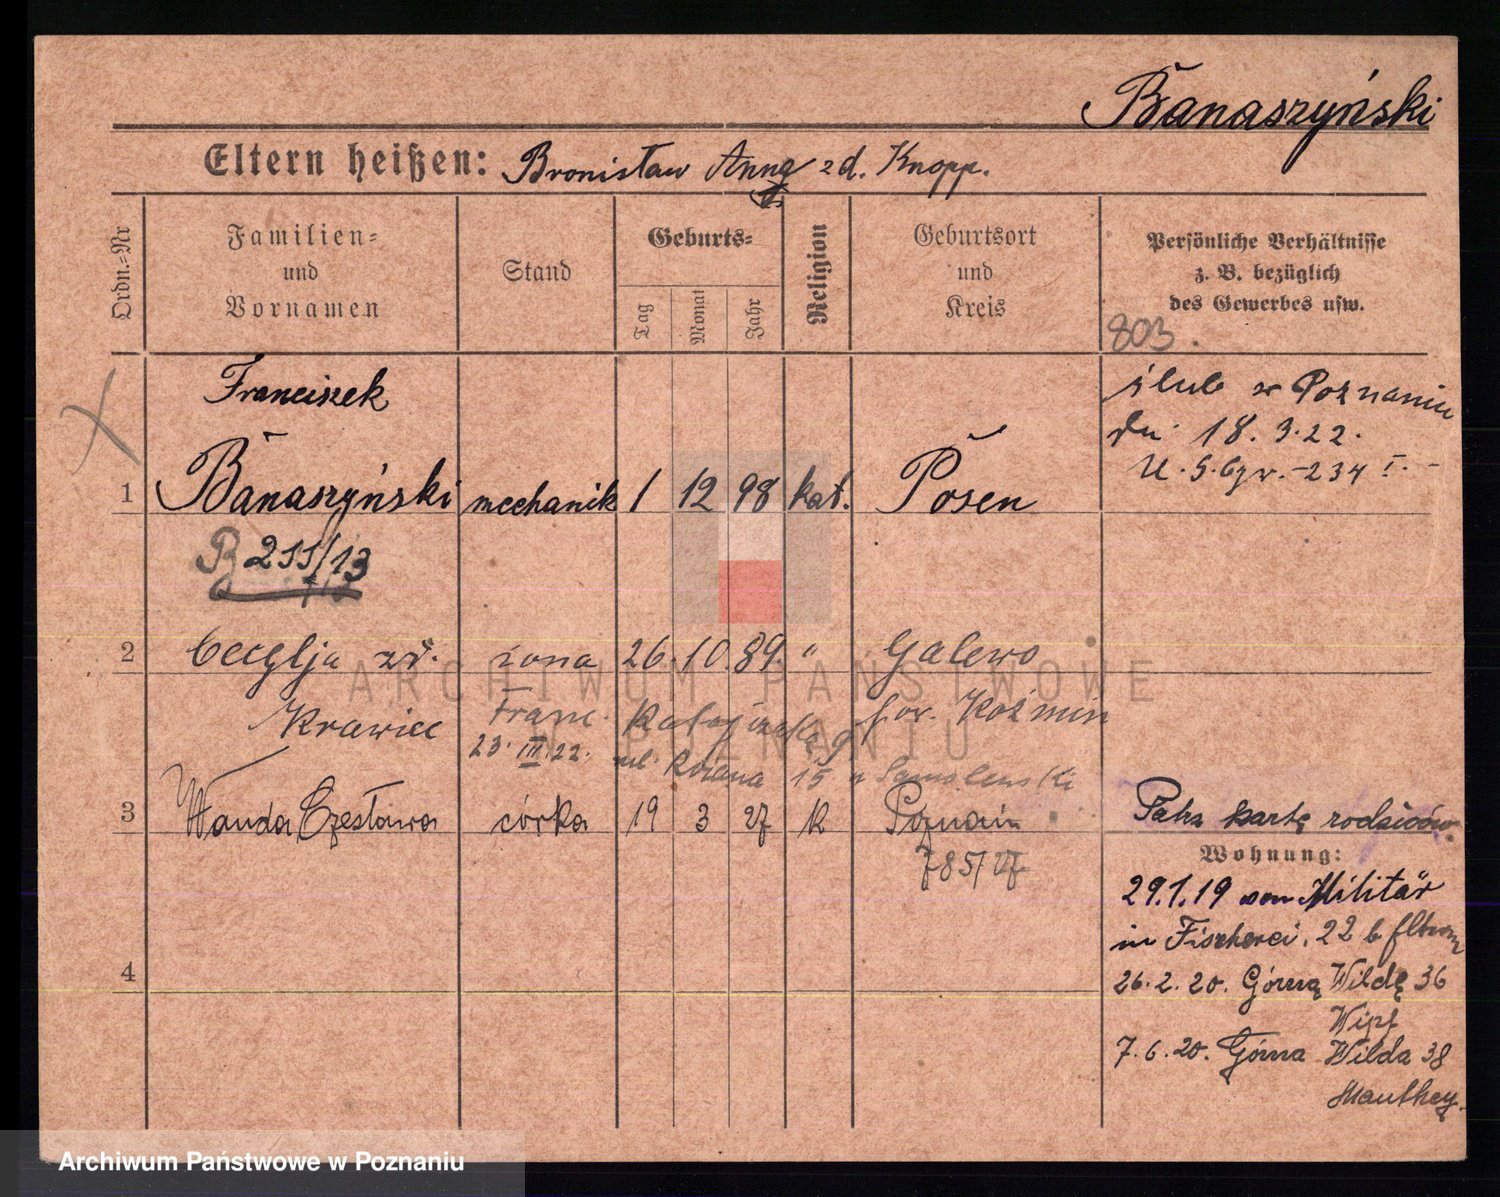 Banaszyński
Eltern heißen: Bronisław Anna zd. Knopp.
Ordn.=Nr
Familien=
und
Vornamen
Stand
Geburts=
Tag
Monat
Jahr
Religion
Geburtsort
und
Kreis
Persönliche Verhältnisse
z. B. bezüglich
des Gewerbes usw.
803.
Franciszek
1 Banaszyński mechanik 1 12 98 kat. Posen
ślub w Poznaniu
dn. 18.3.22.
234
2 Cecylja zd. żona 26.10.89. " Galewo
Krawiec Franc. Ratajczaka 9 pow. Koźmin
23.III.22. ul. 15
3 Wanda Czesława córka 19 3 27 K Poznań
785/27
Patrz kartę rodziców.
Wohnung:
29.1.19 von Militär
in Fischerei. 22 b Eltern
4
26.2.20. Górną Wildę 36
7.6.20. Górna Wilda 38
Manthey.
ARCHIWUM PAŃSTWOWE
W POZNANIU
Archiwum Państwowe w Poznaniu